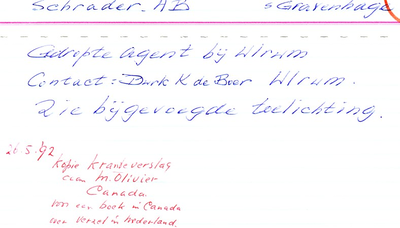 Schrader. AB 's Gravenhage
Gedropte Agent bij Ulrum
Contact: Durk K de Boer Ulrum.
Zie bijgevoegde toelichting.
26.5.92
Kopie Kranteverslag
aan M. Olivier
Canada.
voor een boek in Canada
voor versel in nederland.